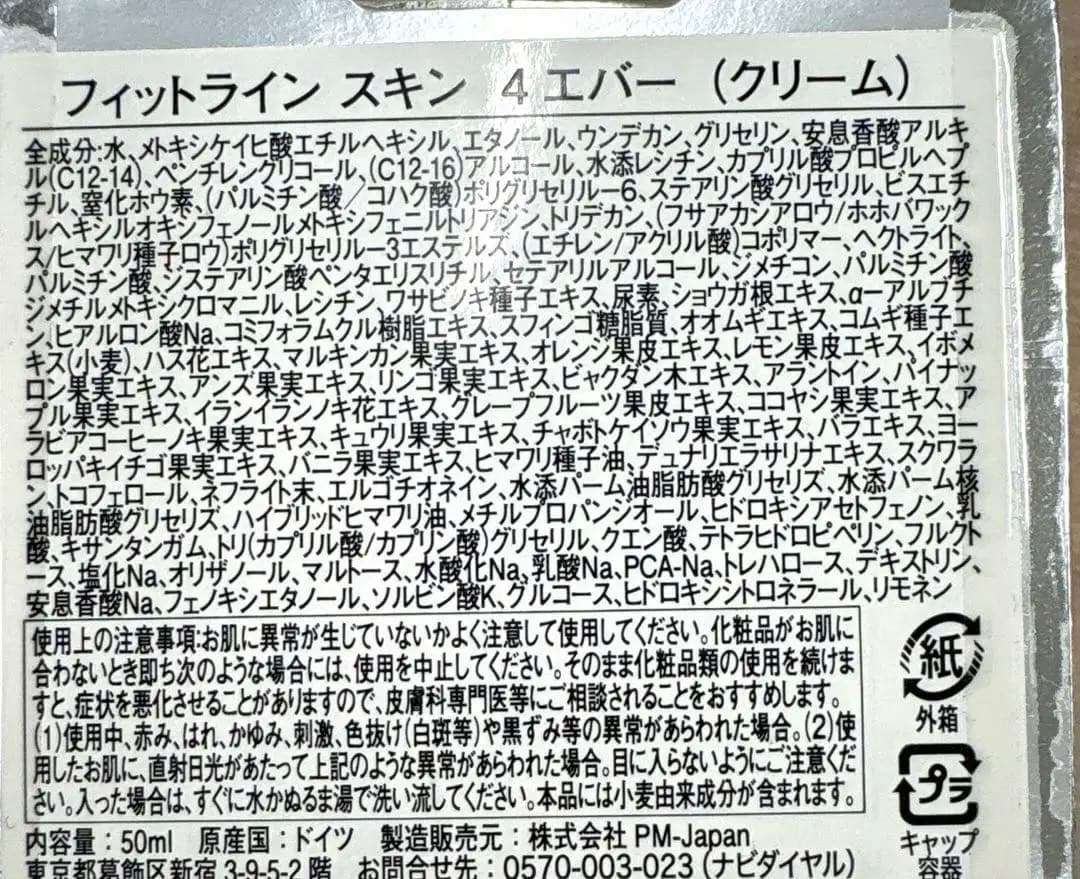 フィットライン スキン 4エバー (クリーム)
全成分:水、メトキシケイヒ酸エチルヘキシル、エタノール、ウンデカン、グリセリン、安息香酸アルキ
ル(C12-14)、ペンチレングリコール、(C12-16)アルコール、水添レシチン、カプリル酸プロピルヘプ
チル、窒化ホウ素、(パルミチン酸/コハク酸)ポリグリセリル-6、ステアリン酸グリセリル、ビスエチ
ルヘキシルオキシフェノールメトキシフェニルトリアジン、トリデカン、(フサアカシアロウ/ホホバワック
ス/ヒマワリ種子ロウ)ポリグリセリル-3エステルズ、(エチレン/アクリル酸)コポリマー、ヘクトライト、
パルミチン酸、ジステアリン酸ペンタエリスリチル、セテアリルアルコール、ジメチコン、パルミチン酸
ジメチルメトキシクロマニル、レシチン、ワサビノキ種子エキス、尿素、ショウガ根エキス、α-アルブチ
ン、ヒアルロン酸Na、コミフォラムクル樹脂エキス、スフィンゴ糖脂質、オオムギエキス、コムギ種子エ
キス(小麦)、ハス花エキス、マルキンカン果実エキス、オレンジ果皮エキス、レモン果皮エキス、イボメ
ロン果実エキス、アンズ果実エキス、リンゴ果実エキス、ビャクダン木エキス、アラントイン、パイナッ
プル果実エキス、イランイランノキ花エキス、グレープフルーツ果皮エキス、ココヤシ果実エキス、ア
ラビアコーヒーノキ果実エキス、キュウリ果実エキス、チャボトケイソウ果実エキス、バラエキス、ヨー
ロッパキイチゴ果実エキス、バニラ果実エキス、ヒマワリ種子油、デュナリエラサリナエキス、スクワラ
ン、トコフェロール、ネフライト末、エルゴチオネイン、水添パーム油脂肪酸グリセリズ、水添パーム核
油脂肪酸グリセリズ、ハイブリッドヒマワリ油、メチルプロパンジオール、ヒドロキシアセトフェノン、乳
酸、キサンタンガム、トリ(カプリル酸/カプリン酸)グリセリル、クエン酸、テトラヒドロピペリン、フルクト
ース、塩化Na、オリザノール、マルトース、水酸化Na、乳酸Na、PCA-Na、トレハロース、デキストリン、
安息香酸Na、フェノキシエタノール、ソルビン酸K、グルコース、ヒドロキシシトロネラール、リモネン
使用上の注意事項:お肌に異常が生じていないかよく注意して使用してください。化粧品がお肌に
合わないとき即ち次のような場合には、使用を中止してください。そのまま化粧品類の使用を続けま
すと、症状を悪化させることがありますので、皮膚科専門医等にご相談されることをおすすめします。
(1)使用中、赤み、はれ、かゆみ、刺激、色抜け(白斑等)や黒ずみ等の異常があらわれた場合。(2)使
用したお肌に、直射日光があたって上記のような異常があらわれた場合。目に入らないようにご注意くだ
さい。入った場合は、すぐに水かぬるま湯で洗い流してください。本品には小麦由来成分が含まれます。
紙
外箱
プラ
キャップ
容器
内容量:50ml 原産国:ドイツ 製造販売元:株式会社 PM-Japan
東京都葛飾区新宿 3-9-5-2階 お問合せ先:0570-003-023(ナビダイヤル)